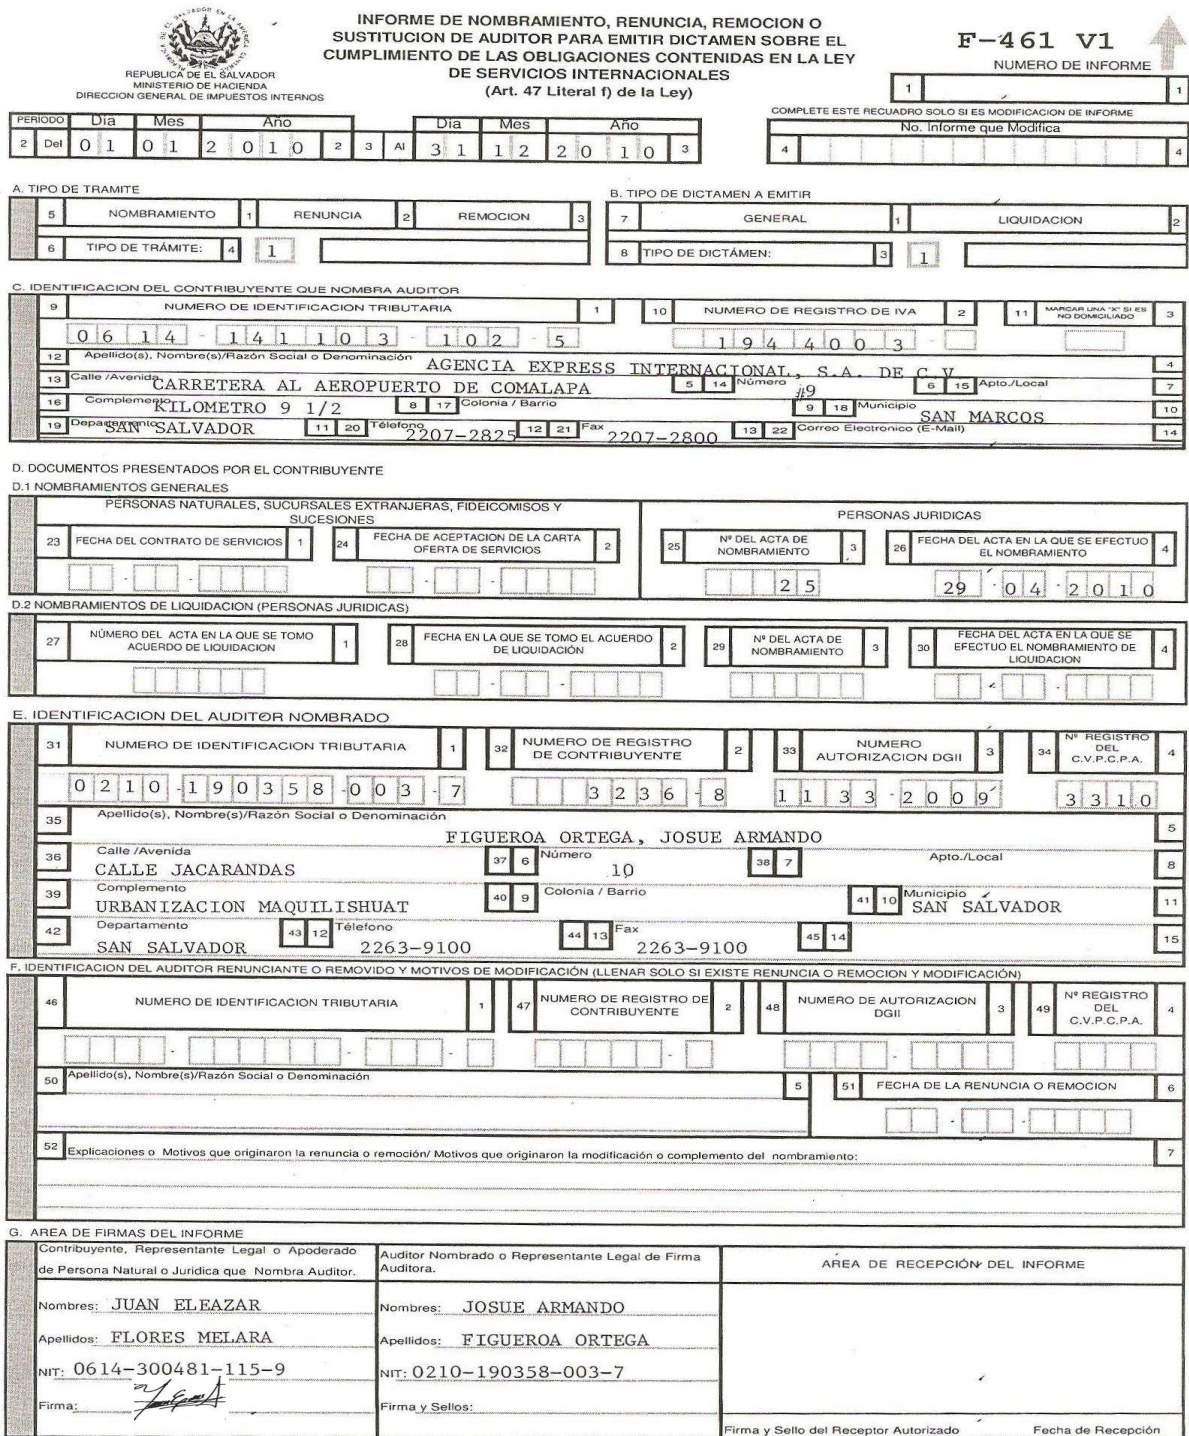 INFORME DE NOMBRAMIENTO, RENUNCIA, REMOCION O
SUSTITUCION DE AUDITOR PARA EMITIR DICTAMEN SOBRE EL
CUMPLIMIENTO DE LAS OBLIGACIONES CONTENIDAS EN LA LEY
DE SERVICIOS INTERNACIONALES
(Art. 47 Literal f) de la Ley)
REPUBLICA DE EL SALVADOR
MINISTERIO DE HACIENDA
DIRECCION GENERAL DE IMPUESTOS INTERNOS
F-461 V1
NUMERO DE INFORME
1 1
COMPLETE ESTE RECUADRO SOLO SI ES MODIFICACION DE INFORME
No. Informe que Modifica
4 4
PERIODO Dia Mes Año Dia Mes Año
2 Del 0 1 0 1 2 0 1 0 2 3 Al 3 1 1 2 2 0 1 0 3
A. TIPO DE TRAMITE
5 NOMBRAMIENTO 1 RENUNCIA 2 REMOCION 3
6 TIPO DE TRÁMITE: 4 1
B. TIPO DE DICTAMEN A EMITIR
7 GENERAL 1 LIQUIDACION 2
8 TIPO DE DICTÁMEN: 3 1
C. IDENTIFICACION DEL CONTRIBUYENTE QUE NOMBRA AUDITOR
9 NUMERO DE IDENTIFICACION TRIBUTARIA 1 10 NUMERO DE REGISTRO DE IVA 2 11 MARCAR UNA "X" SI ES NO DOMICILIADO 3
0 6 1 4 - 1 4 1 1 0 3 - 1 0 2 - 5 1 9 4 4 0 0 3 -
12 Apellido(s), Nombre(s)/Razón Social o Denominación AGENCIA EXPRESS INTERNACIONAL, S.A. DE C.V 4
13 Calle /Avenida CARRETERA AL AEROPUERTO DE COMALAPA 5 14 Número #9 6 15 Apto./Local 7
16 Complemento KILOMETRO 9 1/2 8 17 Colonia / Barrio 9 18 Municipio SAN MARCOS 10
19 Departamento SAN SALVADOR 11 20 Télefono 2207-2825 12 21 Fax 2207-2800 13 22 Correo Electrónico (E-Mail) 14
D. DOCUMENTOS PRESENTADOS POR EL CONTRIBUYENTE
D.1 NOMBRAMIENTOS GENERALES
PERSONAS NATURALES, SUCURSALES EXTRANJERAS, FIDEICOMISOS Y SUCESIONES
PERSONAS JURIDICAS
23 FECHA DEL CONTRATO DE SERVICIOS 1 24 FECHA DE ACEPTACION DE LA CARTA OFERTA DE SERVICIOS 2 25 Nº DEL ACTA DE NOMBRAMIENTO 3 26 FECHA DEL ACTA EN LA QUE SE EFECTUO EL NOMBRAMIENTO 4
2 5 29 - 0 4 - 2 0 1 0
D.2 NOMBRAMIENTOS DE LIQUIDACION (PERSONAS JURIDICAS)
27 NÚMERO DEL ACTA EN LA QUE SE TOMO ACUERDO DE LIQUIDACION 1 28 FECHA EN LA QUE SE TOMO EL ACUERDO DE LIQUIDACIÓN 2 29 Nº DEL ACTA DE NOMBRAMIENTO 3 30 FECHA DEL ACTA EN LA QUE SE EFECTUO EL NOMBRAMIENTO DE LIQUIDACION 4
E. IDENTIFICACION DEL AUDITOR NOMBRADO
31 NUMERO DE IDENTIFICACION TRIBUTARIA 1 32 NUMERO DE REGISTRO DE CONTRIBUYENTE 2 33 NUMERO AUTORIZACION DGII 3 34 Nº REGISTRO DEL C.V.P.C.P.A. 4
0 2 1 0 - 1 9 0 3 5 8 - 0 0 3 - 7 3 2 3 6 - 8 1 1 3 3 - 2 0 0 9 3 3 1 0
35 Apellido(s), Nombre(s)/Razón Social o Denominación FIGUEROA ORTEGA, JOSUE ARMANDO 5
36 Calle /Avenida CALLE JACARANDAS 37 6 Número 10 38 7 Apto./Local 8
39 Complemento URBANIZACION MAQUILISHUAT 40 9 Colonia / Barrio 41 10 Municipio SAN SALVADOR 11
42 Departamento SAN SALVADOR 43 12 Télefono 2263-9100 44 13 Fax 2263-9100 45 14 15
F. IDENTIFICACION DEL AUDITOR RENUNCIANTE O REMOVIDO Y MOTIVOS DE MODIFICACIÓN (LLENAR SOLO SI EXISTE RENUNCIA O REMOCION Y MODIFICACIÓN)
46 NUMERO DE IDENTIFICACION TRIBUTARIA 1 47 NUMERO DE REGISTRO DE CONTRIBUYENTE 2 48 NUMERO DE AUTORIZACION DGII 3 49 Nº REGISTRO DEL C.V.P.C.P.A. 4
50 Apellido(s), Nombre(s)/Razón Social o Denominación 5 51 FECHA DE LA RENUNCIA O REMOCION 6
52 Explicaciones o Motivos que originaron la renuncia o remoción/ Motivos que originaron la modificación o complemento del nombramiento: 7
G. AREA DE FIRMAS DEL INFORME
Contribuyente, Representante Legal o Apoderado
de Persona Natural o Juridica que Nombra Auditor.
Nombres: JUAN ELEAZAR
Apellidos: FLORES MELARA
NIT: 0614-300481-115-9
Firma:
Auditor Nombrado o Representante Legal de Firma
Auditora.
Nombres: JOSUE ARMANDO
Apellidos: FIGUEROA ORTEGA
NIT: 0210-190358-003-7
Firma y Sellos:
AREA DE RECEPCIÓN DEL INFORME
Firma y Sello del Receptor Autorizado Fecha de Recepción